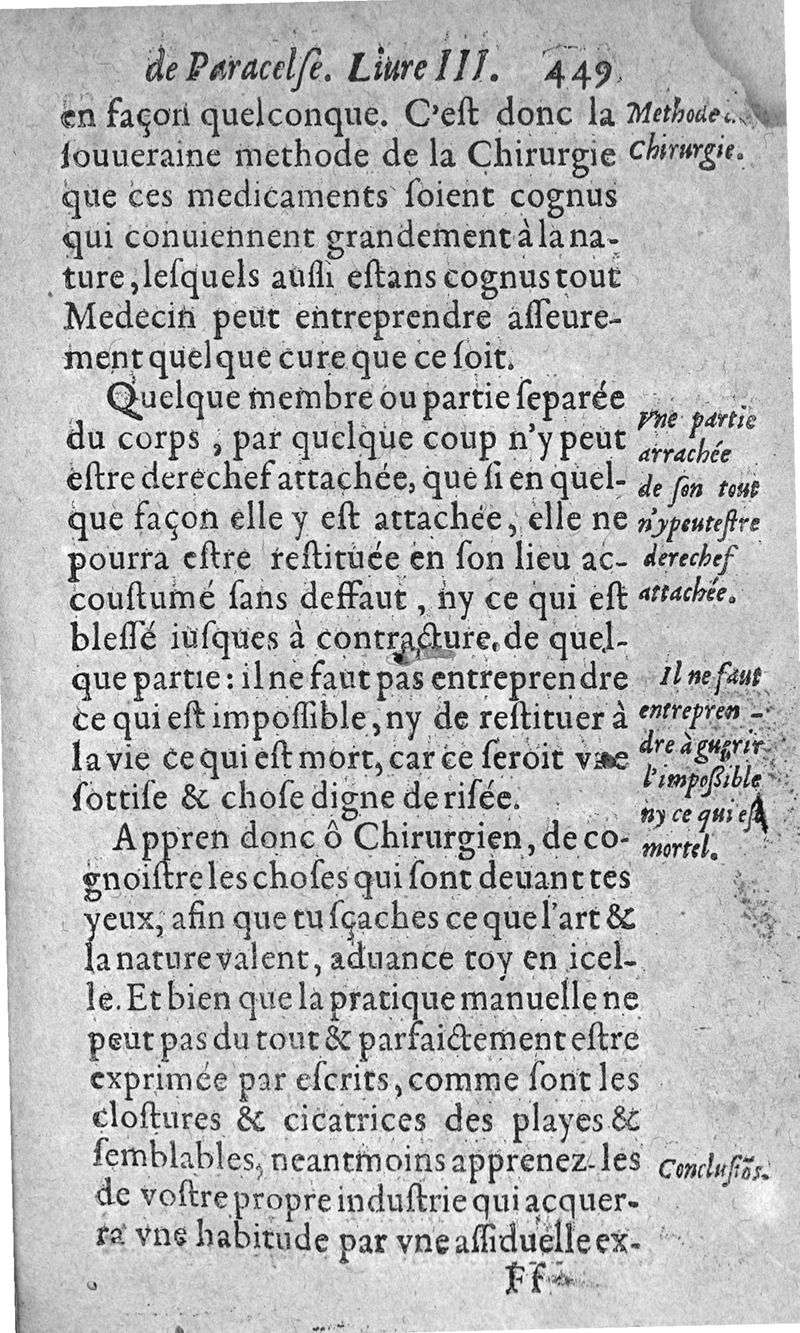 de Paracelſe. Liure III. 449
en façon quelconque. C'eſt donc la
ſouueraine methode de la Chirurgie
que ces medicaments ſoient cognus
qui conuiennent grandement à la na-
ture, leſquels auſſi eſtans cognus tout
Medecin peut entreprendre aſſeure-
ment quelque cure que ce ſoit.
Methode
Chirurgie.
Quelque membre ou partie ſeparée
du corps, par quelque coup n'y peut
eſtre derechef attachée, que ſi en quel-
que façon elle y eſt attachée, elle ne
pourra eſtre reſtituée en ſon lieu ac-
couſtumé ſans deffaut, ny ce qui eſt
bleſſé iuſques à contracture, de quel-
que partie: il ne faut pas entreprendre
ce qui eſt impoſſible, ny de reſtituer à
la vie ce qui eſt mort, car ce ſeroit vne
ſottiſe & choſe digne de riſée.
Vne partie
arrachée
de ſon tout
n'y peut eſtre
derechef
attachée.
Il ne faut
entrepren-
dre à guerir
l'impoßible
ny ce qui eſt
mortel.
Appren donc ô Chirurgien, de co-
gnoiſtre les choſes qui ſont deuant tes
yeux, afin que tu ſçaches ce que l'art &
la nature valent, aduance toy en icel-
le. Et bien que la pratique manuelle ne
peut pas du tout & parfaictement eſtre
exprimée par eſcrits, comme ſont les
cloſtures & cicatrices des playes &
ſemblables, neantmoins apprenez-les
de voſtre propre induſtrie qui acquer-
ra vne habitude par vne aſſiduelle ex-
Concluſiõs.
Ff